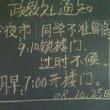 政教处通知
夜市 同学不准
9:10锁楼门
过时不候。
明早7:00开楼门。
08.10.25